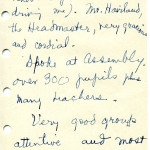 driving me). Mr. Haviland,
the Headmaster, very gracious
and cordial.
Spoke at Assembly.
over 300 pupils plus
many teachers.
Very good group
attentive and most